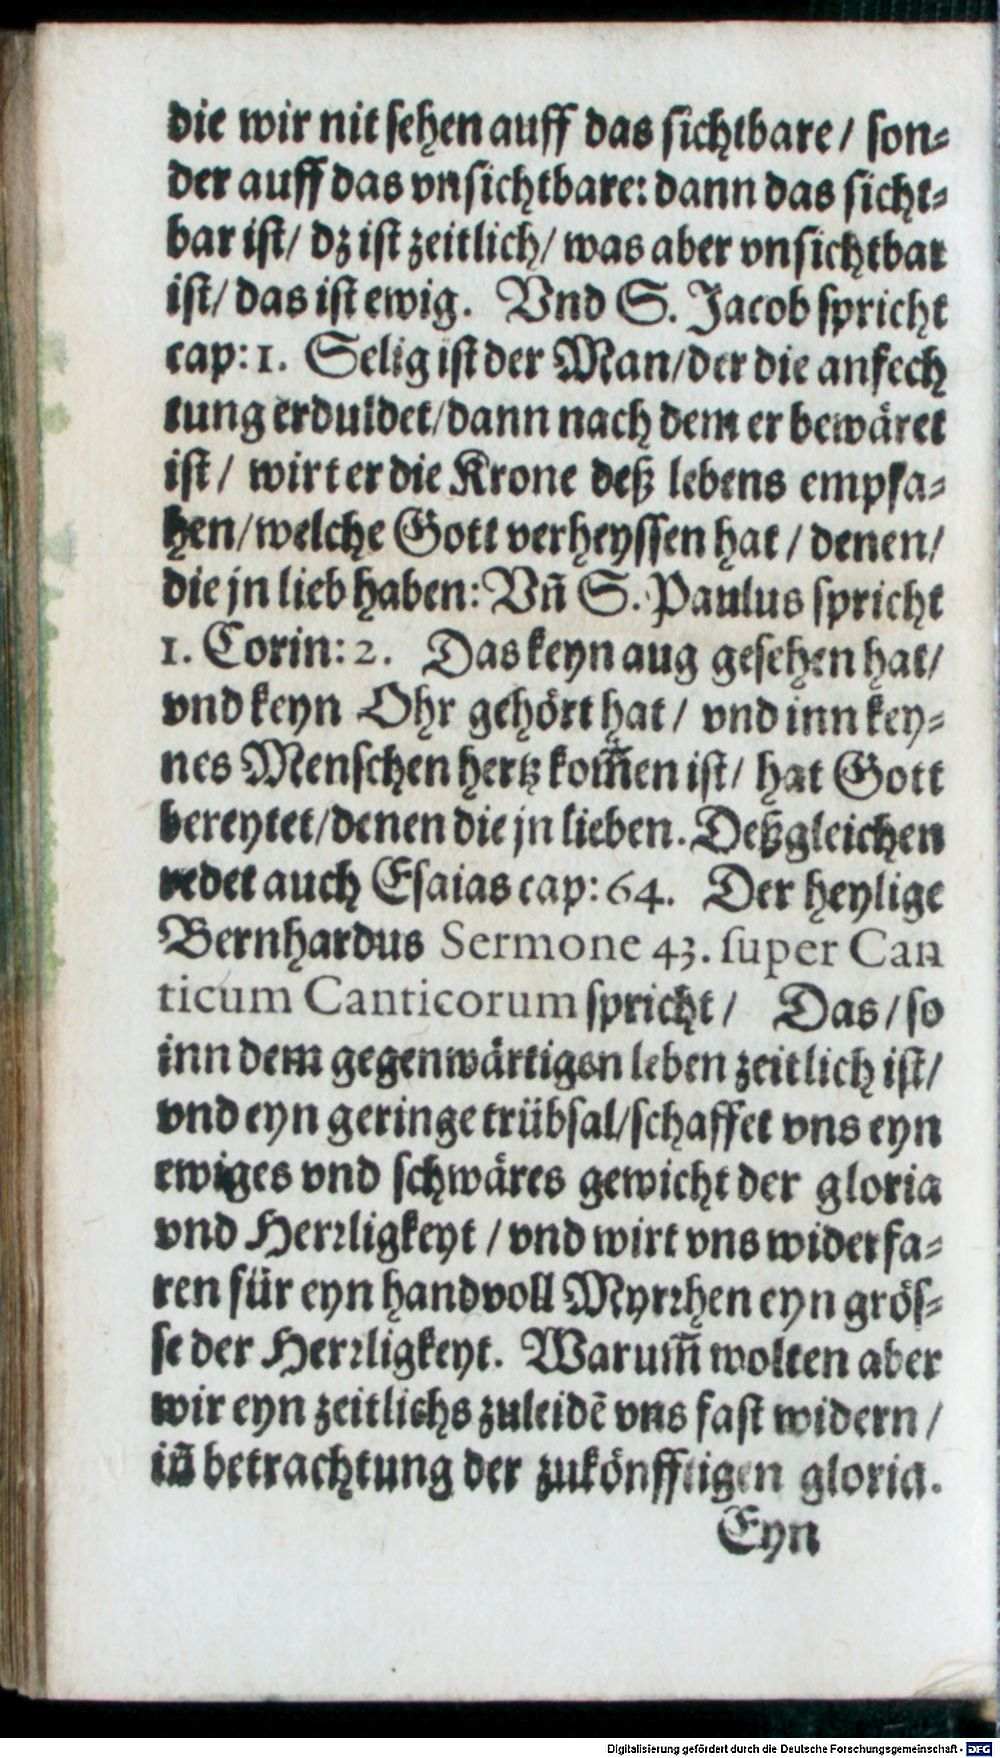 die wir nit sehen auff das sichtbare / son-
der auff das vnsichtbare: dann das sicht-
bar ist / dz ist zeitlich / was aber vnsichtbar
ist / das ist ewig. Vnd S. Jacob spricht
cap: 1. Selig ist der Man / der die anfech
tung erduldet / dann nach dem er bewäret
ist / wirt er die Krone deß lebens empfa-
hen / welche Gott verheyssen hat / denen /
die jn lieb haben: Vñ S. Paulus spricht
1. Corin: 2. Das keyn aug gesehen hat /
vnd keyn Ohr gehört hat / vnd inn key-
nes Menschen hertz kom̃en ist / hat Gott
bereytet / denen die jn lieben. Deßgleichen
redet auch Esaias cap: 64. Der heylige
Bernhardus Sermone 43. super Can
ticum Canticorum spricht / Das / so
inn dem gegenwärtigen leben zeitlich ist /
vnd eyn geringe trübsal / schaffet vns eyn
ewiges vnd schwäres gewicht der gloria
vnd Herrligkeyt / vnd wirt vns widerfa-
ren für eyn handvoll Myrrhen eyn grös-
se der Herrligkeyt. Warum̃ wolten aber
wir eyn zeitlichs zuleidẽ vns fast widern /
iñ betrachtung der zukönfftigen gloria.
Eyn
Digitalisierung gefördert durch die Deutsche Forschungsgemeinschaft - DFG